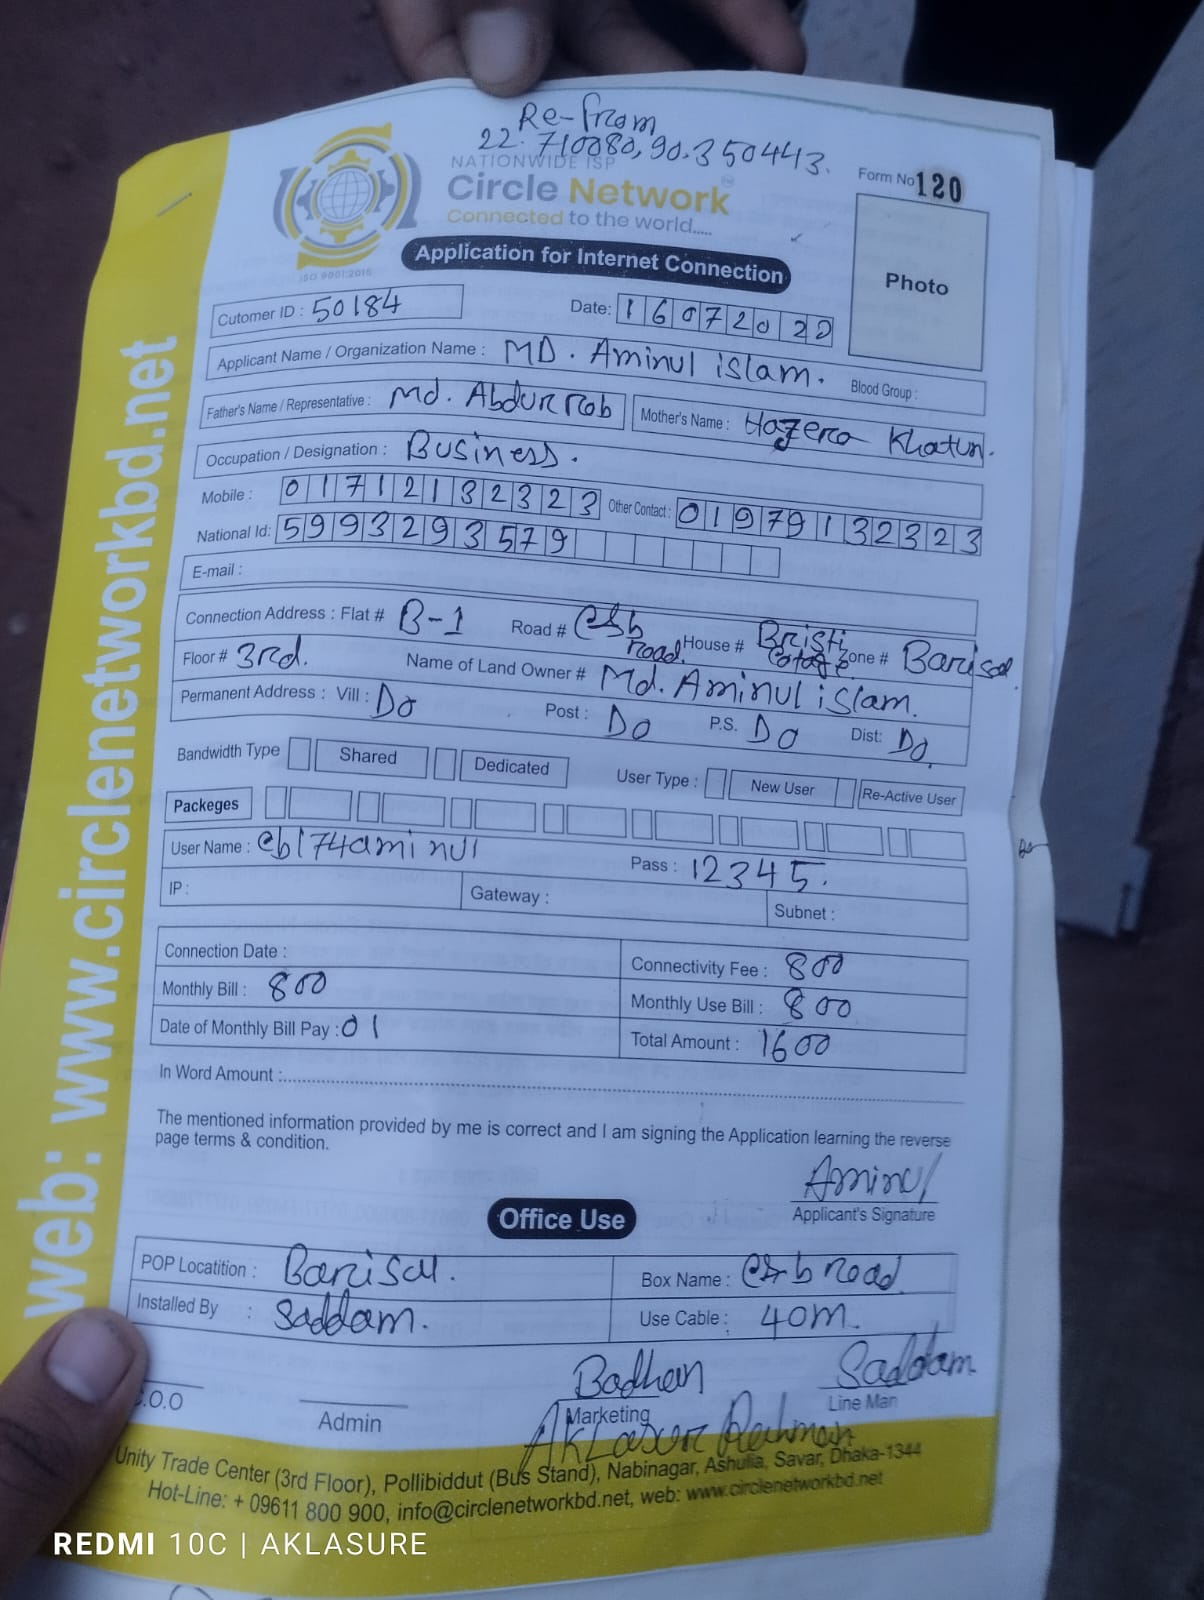 Re-from
22.710080,90.350443.
NATIONWIDE ISP
Circle Network
Connected to the world.....
ISO 9001:2015
Form No 120
Photo
Application for Internet Connection
Cutomer ID : 50184
Date: 16072022
Applicant Name / Organization Name : MD. Aminul islam.
Blood Group :
Father's Name / Representative : Md. Abdur Rob
Mother's Name : Hazera Khatun.
Occupation / Designation : Business.
Mobile : 01712132323 Other Contact : 01979132323
National Id: 5993293579
E-mail :
Connection Address : Flat # B-1 Road # road House # Bristi Zone # Barisal
Floor # 3rd. Name of Land Owner # Md. Aminul islam.
Permanent Address : Vill : Do Post : Do P.S. Do Dist: Do
Bandwidth Type Shared Dedicated User Type : New User Re-Active User
Packeges
User Name : cb174aminul Pass : 12345.
IP : Gateway : Subnet :
Connection Date : Connectivity Fee : 800
Monthly Bill : 800 Monthly Use Bill : 800
Date of Monthly Bill Pay : 01 Total Amount : 1600
In Word Amount :
The mentioned information provided by me is correct and I am signing the Application learning the reverse
page terms & condition.
Aminul
Applicant's Signature
Office Use
POP Locatition : Barisal. Box Name : road
Installed By : Saddam. Use Cable : 40m.
Badhan Saddam
C.O.O Admin Marketing Line Man
Aklasur Rahman
Unity Trade Center (3rd Floor), Pollibiddut (Bus Stand), Nabinagar, Ashulia, Savar, Dhaka-1344
Hot-Line: + 09611 800 900, info@circlenetworkbd.net, web: www.circlenetworkbd.net
web: www.circlenetworkbd.net
REDMI 10C | AKLASURE